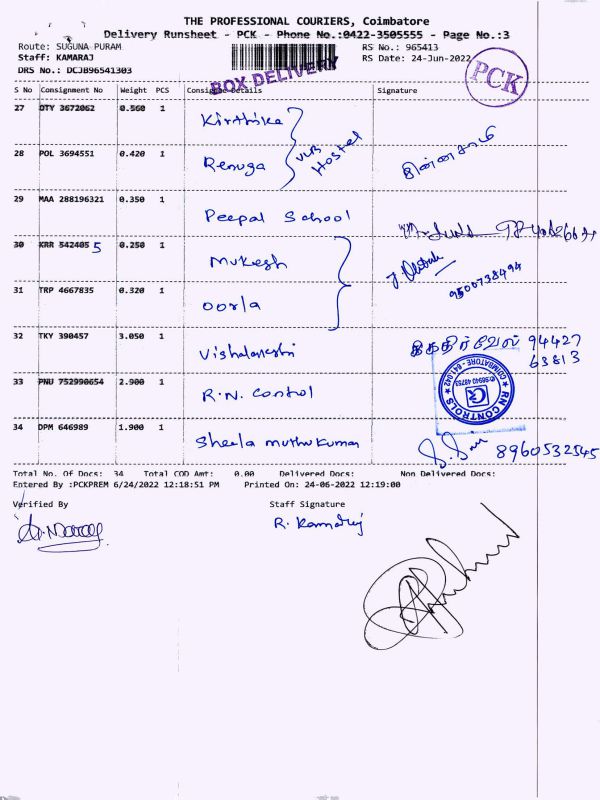 THE PROFESSIONAL COURIERS, Coimbatore
Delivery Runsheet - PCK - Phone No.:0422-3505555 - Page No.:3
Route: SUGUNA PURAM
RS No.: 965413
Staff: KAMARAJ
RS Date: 24-Jun-2022
DRS No.: DCJB96541303
BOX DELIVERY
PCK
S No Consignment No Weight PCS Consignee Details Signature
27 DTY 3672062 0.560 1 Kirthika
28 POL 3694551 0.420 1 Renuga
VLB Hostel
29 MAA 288196321 0.350 1 Peepal School
30 KRR 542405 5 0.250 1 Mukesh
31 TRP 4667835 0.320 1 oorla
9500738494
32 TKY 390457 3.050 1
கதிர்வேல் 94427
63813
33 PNU 752990654 2.900 1 R.N. Control
RN CONTROLS
COIMBATORE - 641 042
34 DPM 646989 1.900 1 Sheela muthukumar
8960532545
Total No. Of Docs: 34 Total COD Amt: 0.00 Delivered Docs: Non Delivered Docs:
Entered By :PCKPREM 6/24/2022 12:18:51 PM Printed On: 24-06-2022 12:19:00
Verified By Staff Signature
R. Kamaraj